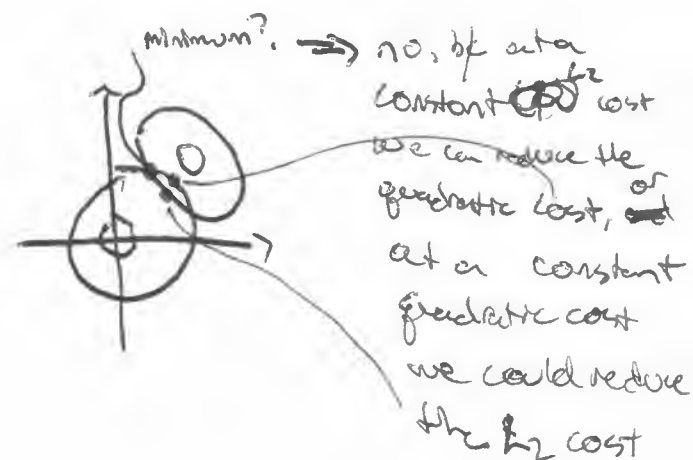 minimum? ⇒ no, b/c at a
constant L2 cost
we can reduce the
quadratic cost, or
at a constant
quadratic cost
we could reduce
the L2 cost